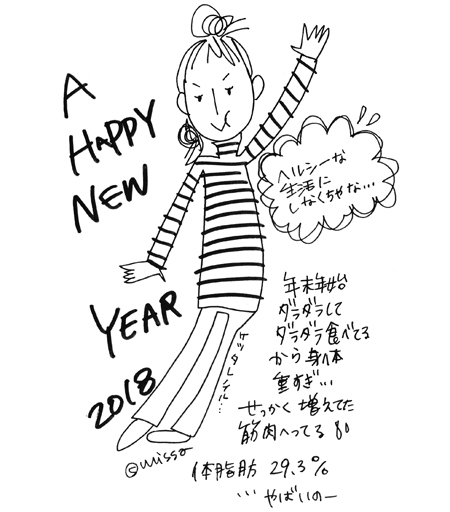 A
HAPPY
NEW
YEAR
2018
ヘルシーな
生活に
しなくちゃな…
年末年始
ダラダラして
ダラダラ食べてる
から身体
重すぎ…
せっかく増えてた
筋肉へってる
体脂肪 29.3%
…やばいのー
©missa